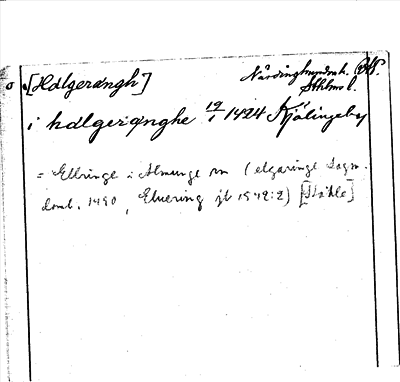 [Hælgerængh]
Närdinghundrah.
Sthlms l.
i hælgerænghe 19/1 1424 Kjölingeby
= Ellringe i Almunge sn (elgaringe Lagm.
domb. 1490, Elvering jb 1542:2) [Ståhle]